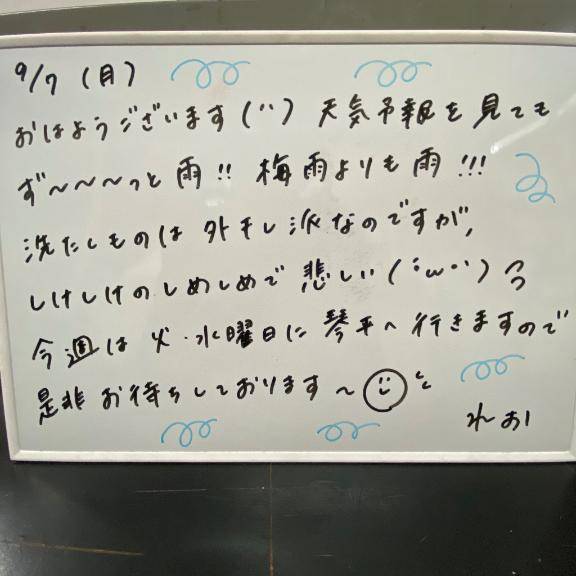 9/7 (月)
おはようございます(¨) 天気予報を見ても
ず〜〜〜っと雨!! 梅雨よりも雨!!!
洗たくものは外干し派なのですが,
しけしけのしめしめで悲しい(´ω`)
今週は火・水曜日に琴平へ行きますので
是非お待ちしております〜
れお